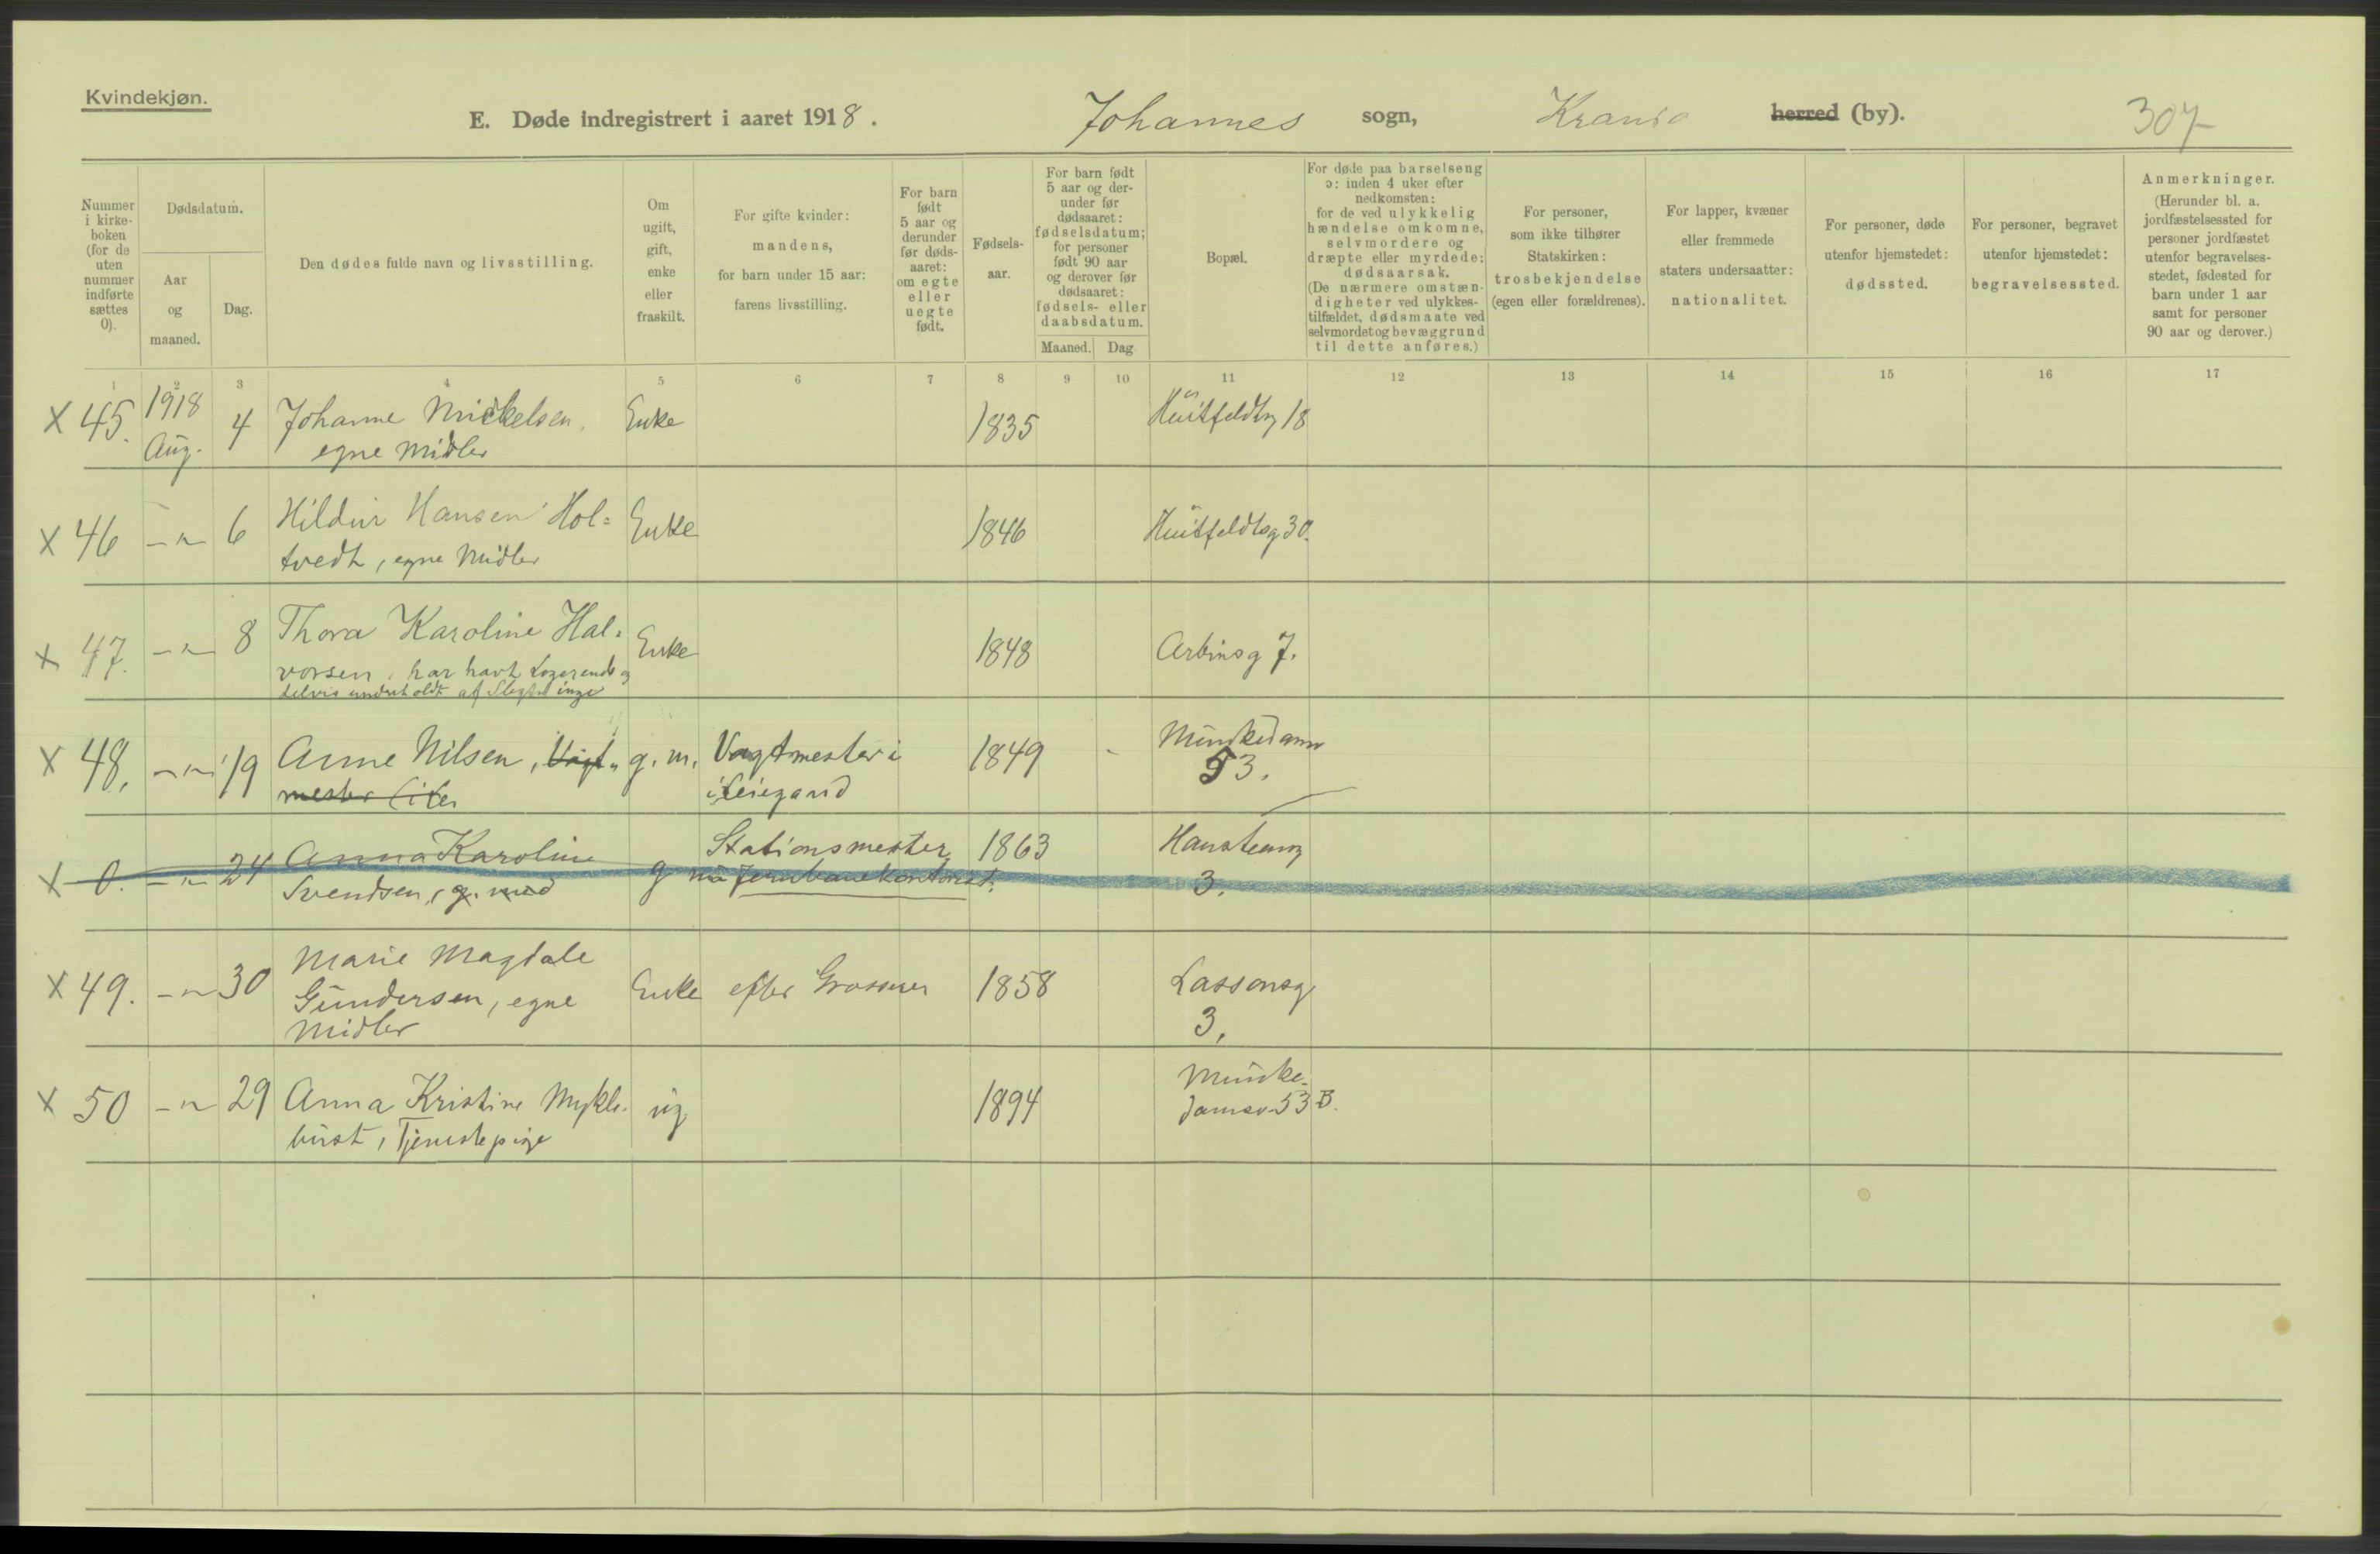 Kvindekjøn.
E. Døde indregistrert i aaret 1918. Johannes sogn, Krania herred (by). 307
Nummer i kirke-boken (for de uten nummer indførte sættes 0).
Dødsdatum.
Aar og maaned.
Dag.
Den dødes fulde navn og livsstilling.
Om ugift, gift, enke eller fraskilt.
For gifte kvinder: mandens, for barn under 15 aar: farens livsstilling.
For barn født 5 aar og derunder før døds-aaret: om egte eller uegte født.
Fødsels-aar.
For barn født 5 aar og der-under før dødsaaret: fødselsdatum; for personer født 90 aar og derover før dødsaaret: fødsels- eller daabsdatum.
Maaned. Dag
Bopæl.
For døde paa barselseng ɔ: inden 4 uker efter nedkomsten: for de ved ulykkelig hændelse omkomne, selvmordere og dræpte eller myrdede: dødsaarsak. (De nærmere omstæn-digheter ved ulykkes-tilfældet, dødsmaate ved selvmordet og bevæggrund til dette anføres.)
For personer, som ikke tilhører Statskirken: trosbekjendelse (egen eller forældrenes).
For lapper, kvæner eller fremmede staters undersaatter: nationalitet.
For personer, døde utenfor hjemstedet: dødssted.
For personer, begravet utenfor hjemstedet: begravelsessted.
Anmerkninger. (Herunder bl. a. jordfæstelsessted for personer jordfæstet utenfor begravelses-stedet, fødested for barn under 1 aar samt for personer 90 aar og derover.)
1 2 3 4 5 6 7 8 9 10 11 12 13 14 15 16 17
X 45. 1918 Aug. 4 Johanne Mickelsen. Enke 1835 Huitfeldtsg 18
egne Midler
X 46 -"- 6 Hildur Hansen Hol= Enke 1846 Huitfeldtsg 30.
tvedt, egne Midler
X 47. -"- 8 Thora Karoline Hal- Enke 1848 Arbinsg 7.
vorsen, har havt Logerende og
delvis underholdt af Slegtninge
X 48. -"- 19 Anne Nilsen, Vagt- g. m. Vagtmester i 1849 Munkedamsv
mester 53.
X 0. -"- 24 Anna Karoline g Stationsmester 1863 Hansteensg
Svendsen, g. med Jernbanekontoret. 3.
X 49. -"- 30 Marie Magdale Enke efter Grosserer 1858 Lassonsg
Gundersen, egne 3.
Midler
X 50 -"- 29 Anna Kristine Mykle- ug 1894 Munke-
bust, Tjenestepige damsv 53 B.